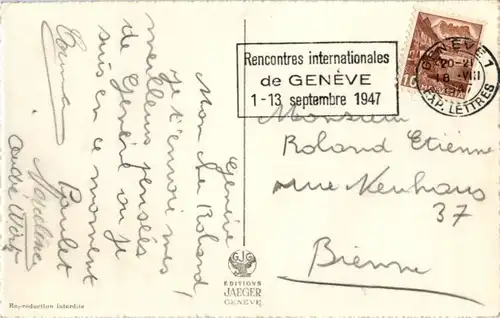 Genève
Mon cher Roland,
Je t'envoi mes
meilleures pensées
de Genève ou je
suis en ce moment
Poulet
Rencontres internationales
de GENÈVE
1-13 septembre 1947
GENÈVE 1
20-21
18 VIII
EXP. LETTRES
10
Monsieur
Roland Etienne
rue Neuhaus
37
Bienne
GJG
EDITIONS
JAEGER
GENÈVE
Reproduction interdite